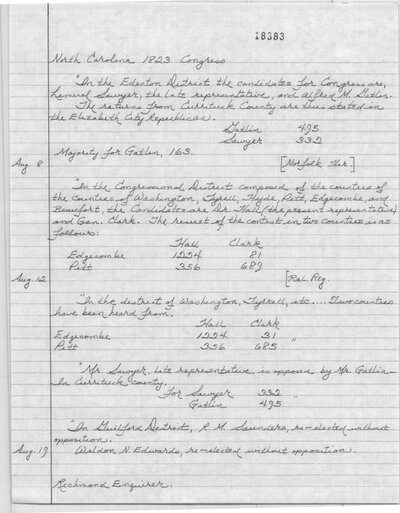 18383
North Carolina 1823 Congress
"In the Edenton District the candidates for Congress are,
Lemuel Sawyer, the late representative, and Alfred M. Gatlin.
The returns from Currituck County are thus stated in
the Elizabeth City Republican).
Gatlin 495
Sawyer 332
Majority for Gatlin, 163.
Aug. 8 [Norfolk Her.]
"In the Congressional District composed of the counties of
the counties of Washington, Tyrell, Hyde, Pitt, Edgecombe, and
Beaufort, the Candidates are Dr. Hall (the present representative)
and Gen. Clark. The result of the contest in two counties is as
follows:
Hall Clark
Edgecombe 1224 81
Pitt 356 689
Aug. 12 [Ral. Reg.
"In the district of Washington, Tyrrell, etc .... Two counties
have been heard from.
Hall Clark
Edgecombe 1224 31 "
Pitt 356 685
"Mr. Sawyer, late representative is opposed by Mr. Gatlin -
In Currituck County.
For Sawyer 332 "
Gatlin 495
"In Guilford District, R. M. Saunders, re-elected without
opposition.
Aug. 19 Weldon N. Edwards, re-elected without opposition).
Richmond Enquirer.